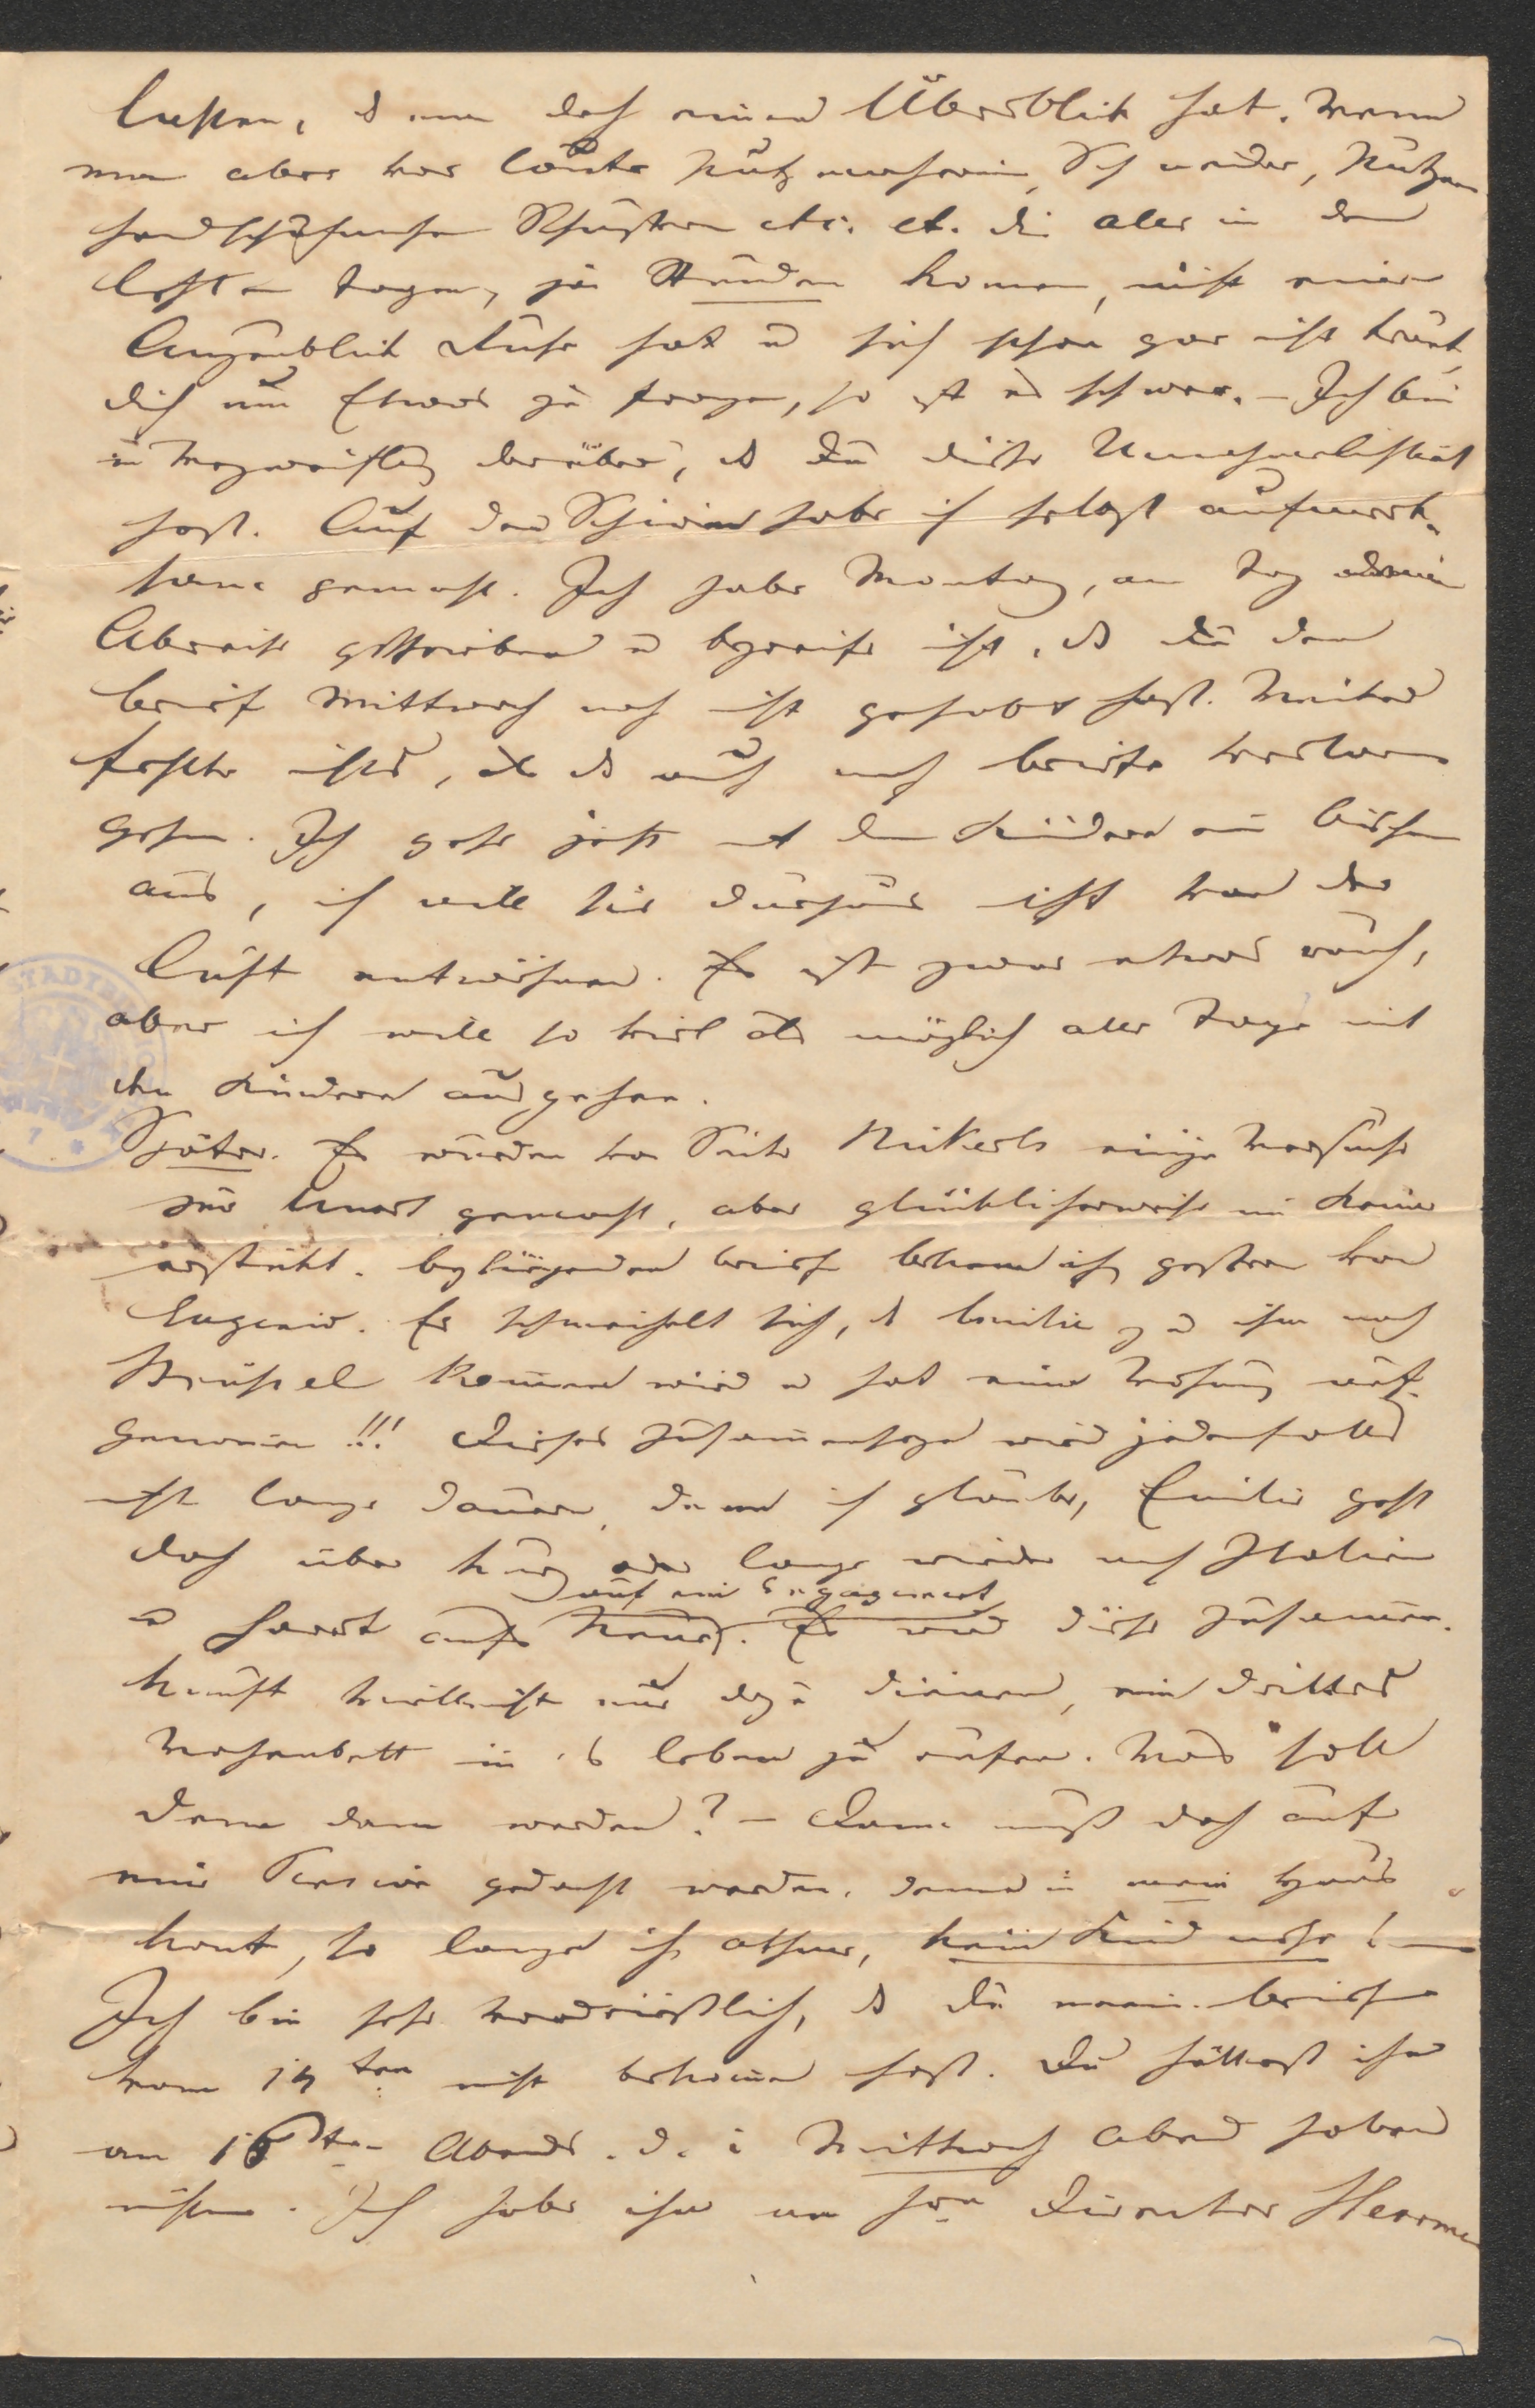 lassen, daß man doch einen Überblick hat. Wenn
man aber vor lauter Putzmacherin, Schneider, Putzen
Handschuhmacher Schustern etc. et. die alle in den
letzten Tagen, ja Stunden kommen, nicht einen
Augenblick Ruhe hat u sich schon gar nicht traut,
dich um Etwas zu fragen, so ist es schwer. – Ich bin
in Verzweiflung darüber, daß Du diese Unannehmlichkeit
hast. Auf den Schirm habe ich selbst aufmerk-
sam gemacht. Ich habe Montag, am Tag deiner
Abreise geschrieben u begreife nicht, daß Du den
Brief Mittwoch noch nicht gehabt hast. Weiter
fehlte nichts, als daß auch noch Briefe verloren
gehen. Ich gehe jetzt mit den Kindern ein bischen
aus, ich will sie durchaus nicht von der
Luft entwöhnen. Es ist zwar etwas rauh,
aber ich will so viel als möglich alle Tage mit
den Kindern ausgehen.
Später. Es wurden von Seite Mikerls einige Versuche
zur Unart gemacht, aber glücklicherweise im Keime
erstickt. Beyliegenden Brief bekam ich gestern von
Eugenio. Er schmeichelt sich, daß Emilie zu ihm nach
Brüssel kommen wird u hat eine Wohnung auf-
genommen!!! Dieses Zusammenseyn wird jedenfalls
nicht lange dauern, denn ich glaube, Emilie geht
doch über kurz oder lang wieder nach Italien
auf ein Engagement
u harrt aufs Neue. Es wird diese Zusammen-
kunft vielleicht nur dazu dienen, ein drittes
Wochenbett in's Leben zu rufen. Was soll
denn dann werden? – Dann muß doch auf
eine Pension gedacht werden, denn in mein Haus
kommt, so lange ich athme, kein Kind mehr! –
Ich bin sehr verdrießlich, daß Du meinen Brief
vom 14ten nicht bekommen hast. Du hättest ihn
am 16ten Abends, d. i. Mittwoch Abend haben
müssen. Ich habe ihn an Hrn Director Herrmann